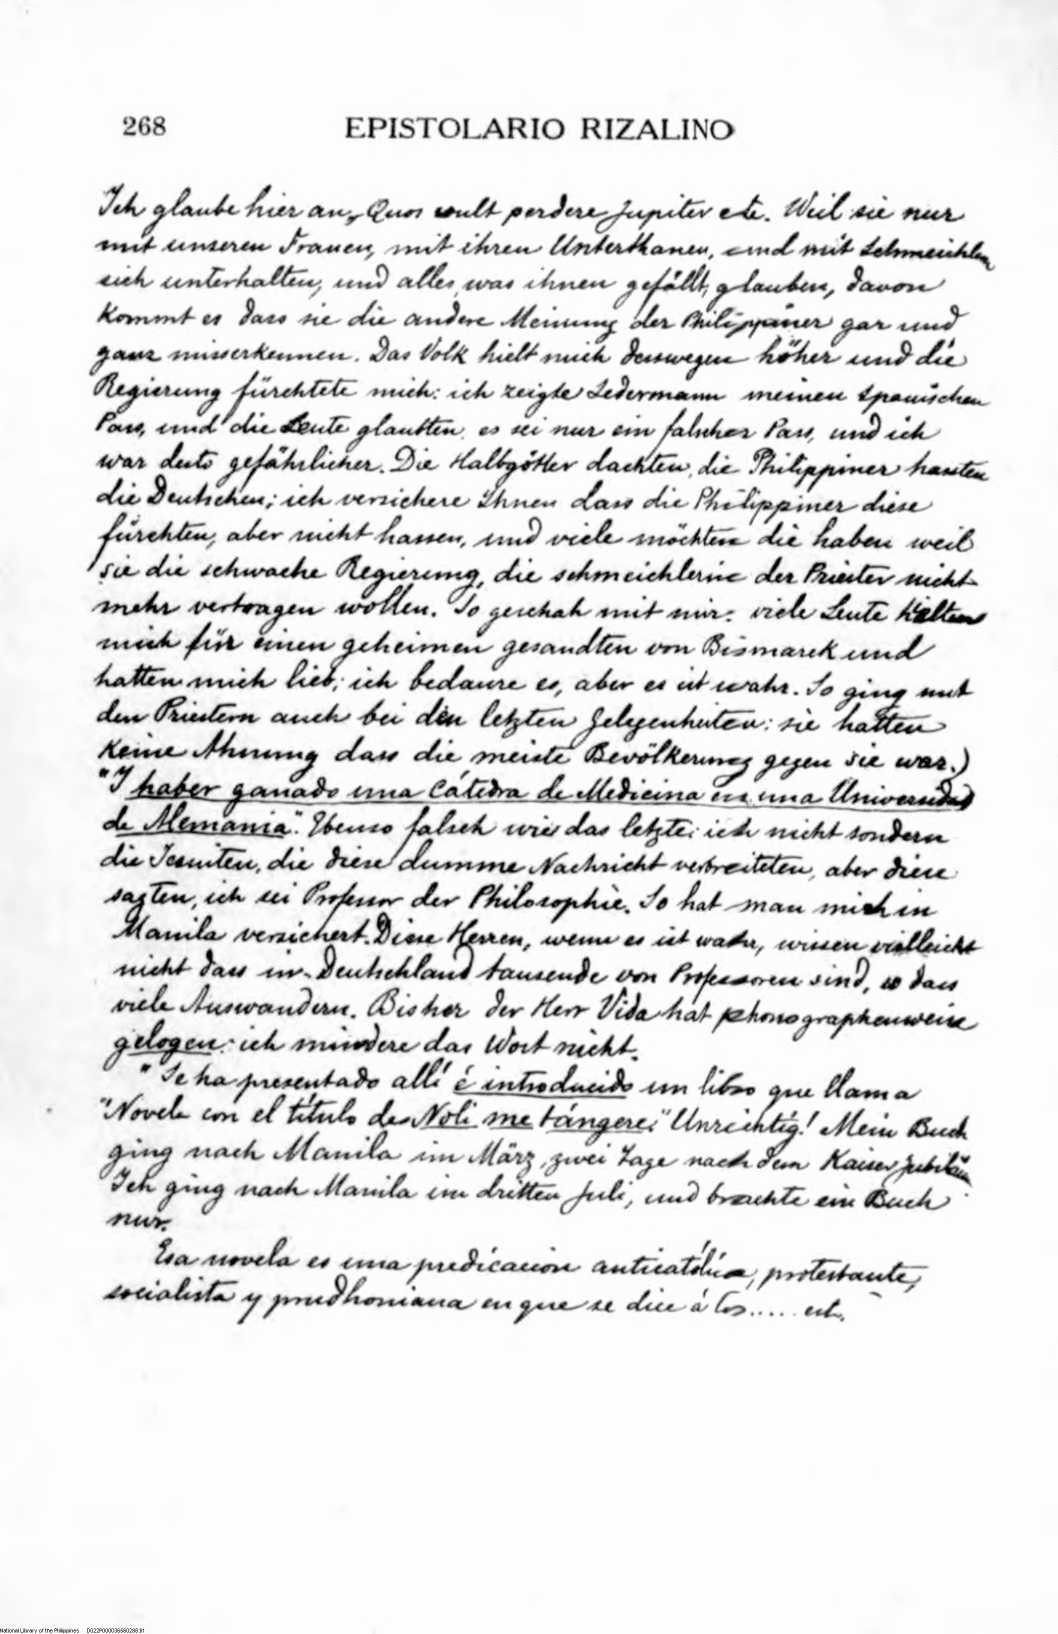 268 EPISTOLARIO RIZALINO
Ich glaube hier an, Quos vult perdere Jupiter etc. Weil sie nur
mit unseren Frauen, mit ihren Unterthanen, und mit Schmeichlern
sich unterhalten, und alles was ihnen gefällt, glauben, davon
kommt es dass sie die andere Meinung der Philippiner gar und
ganz misserkennen. Das Volk hielt mich desswegen höher und die
Regierung fürchtete mich: ich zeigte Jedermann meinen spanischen
Pass, und die Leute glaubten es sei nur ein falscher Pass, und ich
war desto gefährlicher. Die Halbgötter dachten, die Philippiner hassten
die Deutschen; ich versichere Ihnen dass die Philippiner diese
fürchten, aber nicht hassen, und viele möchten die haben weil
sie die schwache Regierung, die schmeichlerin der Priester nicht
mehr vertragen wollen. So geschah mit mir: viele Leute hielten
mich für einen geheimen gesandten von Bismarck und
hatten mich lieb; ich bedaure es, aber es ist wahr. So ging mit
den Priestern auch bei den letzten Gelegenheiten: sie hatten
keine Ahnung dass die meiste Bevölkerung gegen sie war.)
"Y haber ganado una Cátedra de Medicina en una Universidad
de Alemania". Ebenso falsch wie das letzte: ich nicht sondern
die Jesuiten, die diese dumme Nachricht verbreiteten, aber diese
sagten, ich sei Professor der Philosophie. So hat man mich in
Manila versichert. Diese Herren, wenn es ist wahr, wissen vielleicht
nicht dass in Deutschland tausende von Professoren sind, so dass
viele Auswandern. Bisher der Herr Vida hat phonographenweise
gelogen: ich mindere das Wort nicht.
"Se ha presentado allí é introducido un libro que llama
"Novela con el título de Noli me tángere;" Unrichtig! Mein Buch
ging nach Manila im März, zwei Tage nach dem Kaiser Jubiläum
Ich ging nach Manila im dritten Juli, und brachte ein Buch
nur.
Esa novela es una predicación anticatólica, protestante,
socialista y prudhoniana en que se dice á los..... ect.
National Library of the Philippines